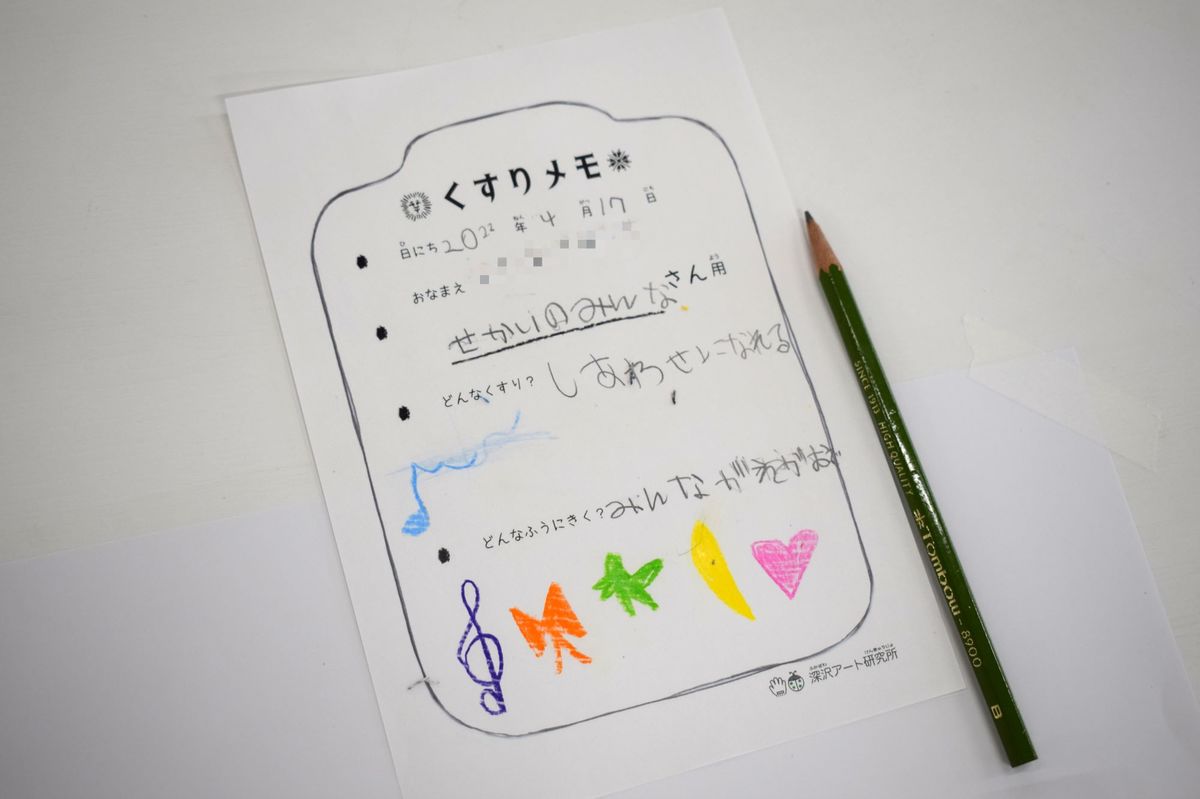 くすりメモ
日にち 2022 年 4 月 17 日
おなまえ
せかいのみんなさん用
どんなくすり? しあわせになれる
どんなふうにきく? みんながえがお
深沢アート研究所
SINCE 1913 HIGH QUALITY Tombow - 8900 B